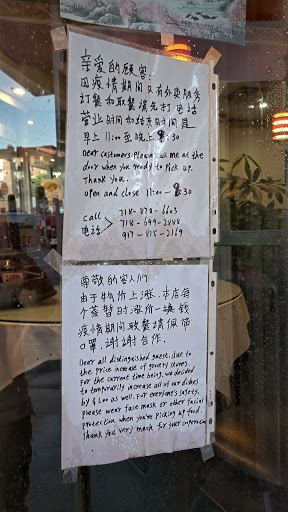 亲爱的顾客:
因疫情期间只有外卖服务
订餐和取餐请先打电话
营业时间和结束时间是
早上 11:00 至晚上 8:30
Dear customers Please call me at the
door when you ready to Pick up.
Thank you.
Open and close 11:00 - 8:30
Call 电话
718-878-6603
718-699-2888
917-815-2169
尊敬的客人们
由于物价上涨.本店每
个菜暂时涨价一块钱
疫情期间取餐请佩带
口罩,谢谢合作.
Dear all distinguished guest, due to
the price increase of grocery stores.
For the current time being, we decided
to temporarily increase all of our dishes
by $1.00 as well. For everyone's safety,
please wear face mask or other facial
protection when you're picking up food.
Thank you very much for your cooperation